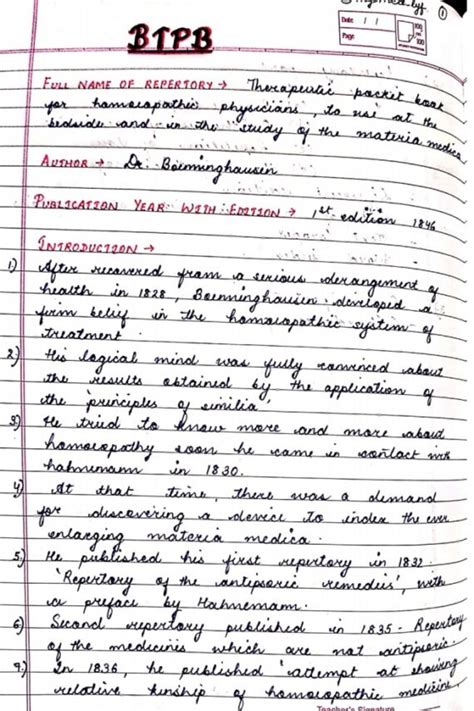 ①
Date / /
Page
BTPB
FULL NAME OF REPERTORY → Therapeutic pocket book
for homoeopathic physicians, to use at the
bedside and in the study of the materia medica
AUTHOR → Dr. Boenninghausen
PUBLICATION YEAR WITH EDITION → 1st edition 1846
INTRODUCTION →
1) After recovered from a serious derangement of
health in 1828, Boenninghausen developed a
firm belief in the homoeopathic system of
treatment.
2) His logical mind was fully convinced about
the results obtained by the application of
the 'principles of similia'
3) He tried to know more and more about
homoeopathy soon he came in contact with
hahnemann in 1830.
4) At that time, there was a demand
for discovering a device to index the ever
enlarging materia medica.
5) He published his first repertory in 1832
'Repertory of the antipsoric remedies', with
a preface by Hahnemann.
6) Second repertory published in 1835 - Repertory
of the medicines which are not antipsoric.
7) In 1836, he published 'attempt at showing
relative kinship of homoeopathic medicine
Teacher's Signature